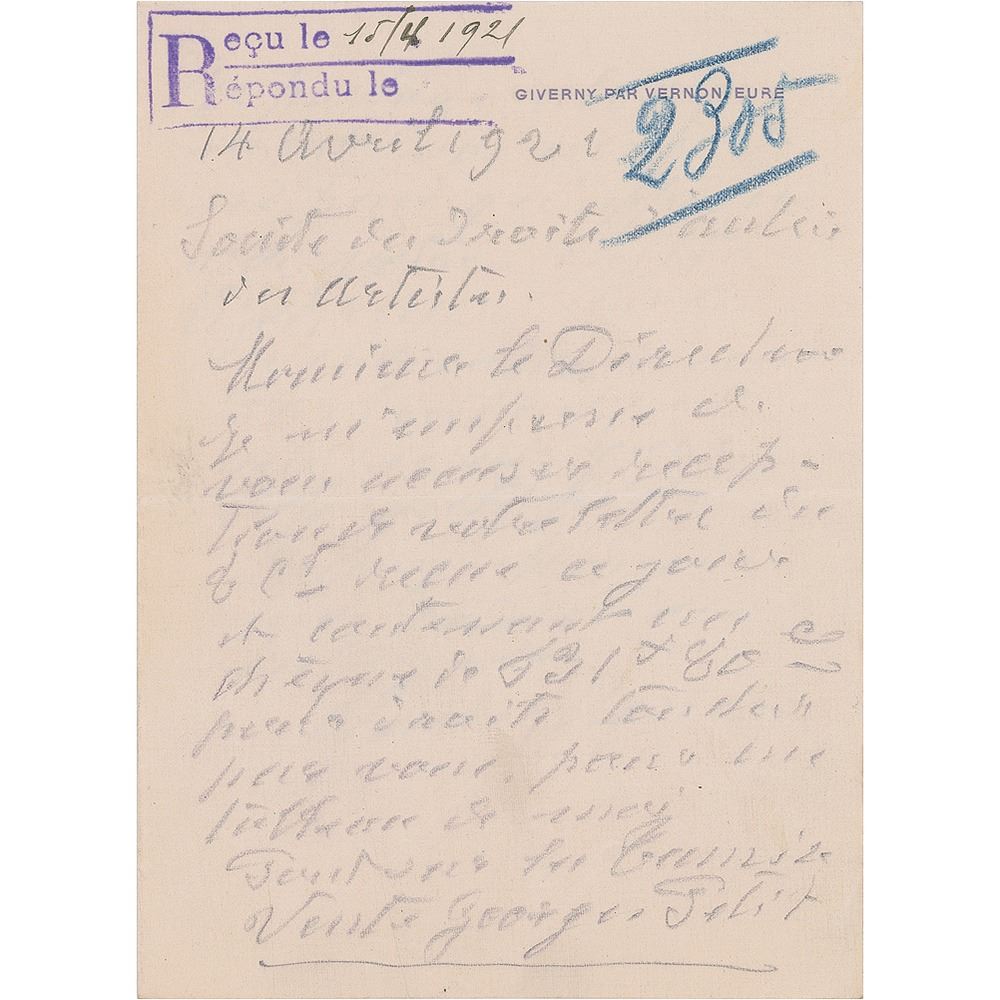 Reçu le 15/4 1921
Répondu le
GIVERNY PAR VERNON, EURE
2305
14 Avril 1921
Société des Droits d'auteur
des Artistes.
Monsieur le Directeur
Je m'empresse de
vous accuser récep-
tion de votre lettre du
8 ct reçue ce jour
et contenant un
chèque de 531 f 80 c
pour droits touchés
par vous pour un
tableau de moi
Vente Georges Petit